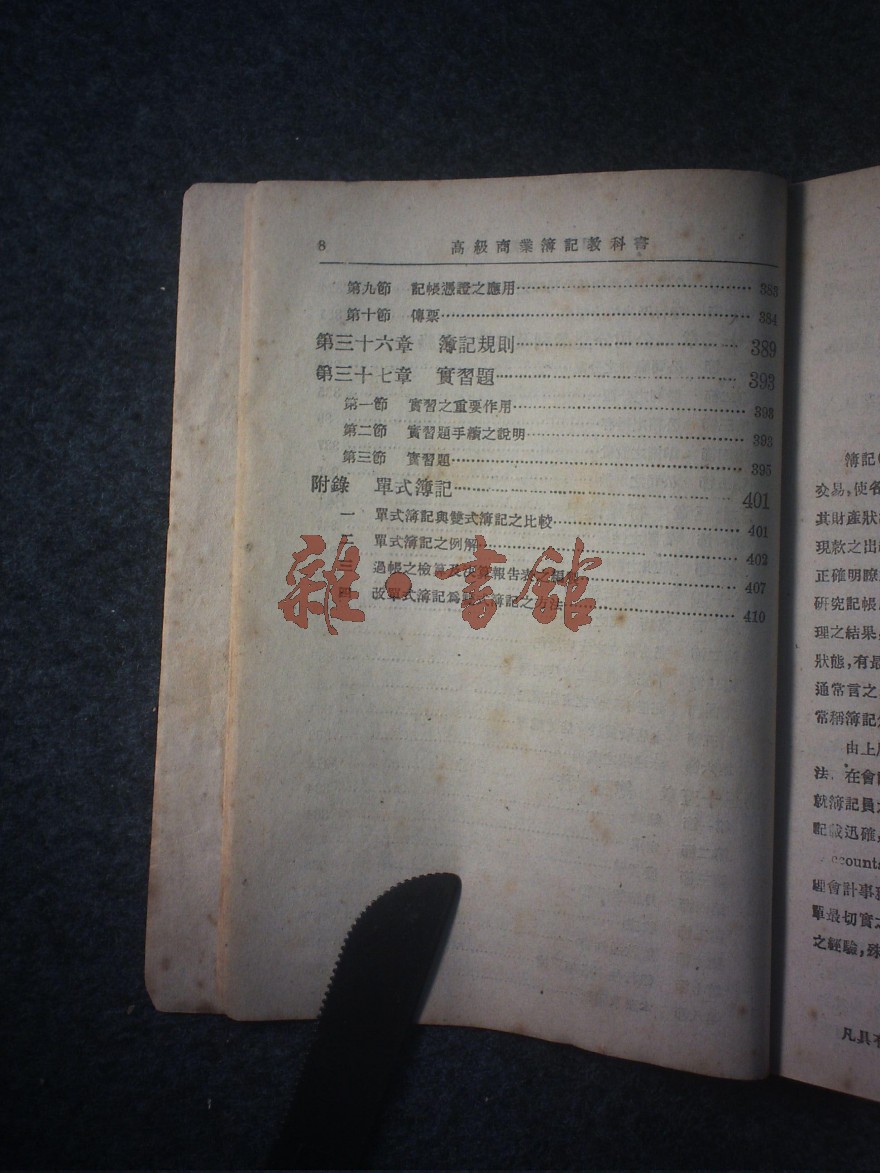 8 高級商業簿記教科書
第九節 記帳憑證之應用 383
第十節 傳票 384
第三十六章 簿記規則 389
第三十七章 實習題 393
第一節 實習之重要作用 393
第二節 實習題手續之說明 393
第三節 實習題 395
附錄 單式簿記 401
一 單式簿記與雙式簿記之比較 401
二 單式簿記之例解 402
三 過帳之檢算及決算報告表之 407
四 改單式簿記爲 簿記之方法 410
雜·書館
簿記
交易,使各
其財產狀
現款之出
正確明瞭
研究記帳
理之結果
狀態,有最
通常言之
常稱簿記
由上
法.在會
就簿記員
記載迅確
ccounts
理會計事
單最切實之
之經驗,殊
凡具有